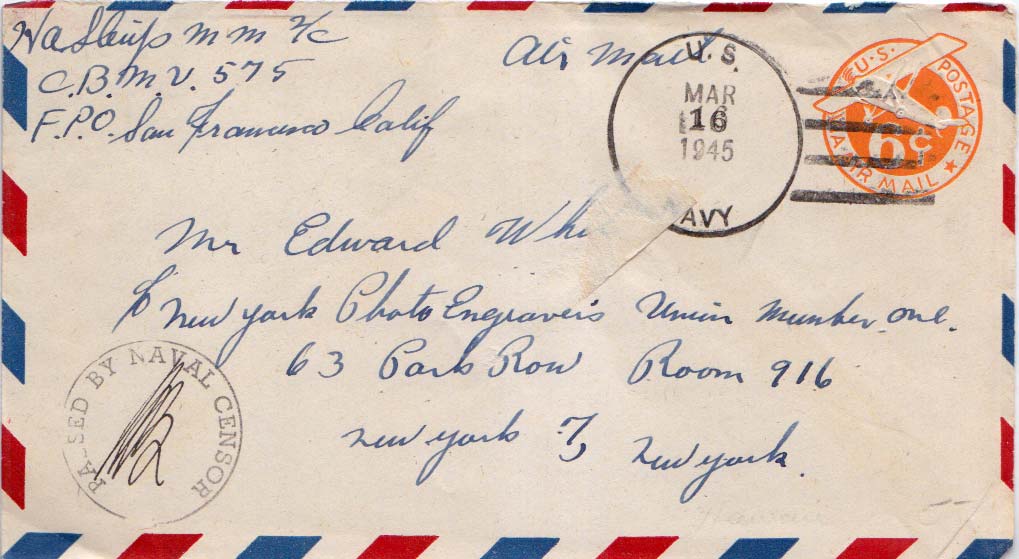 MM 2/c
C.B.M.U. 575
F.P.O. San Francisco Calif
Air Mail
U.S.
MAR
16
1945
AVY
U.S. POSTAGE
6¢
VIA AIR MAIL
Mr Edward Whi
c/o New York Photo Engravers Union Number one.
63 Park Row Room 916
New York 7, New York.
PASSED BY NAVAL CENSOR